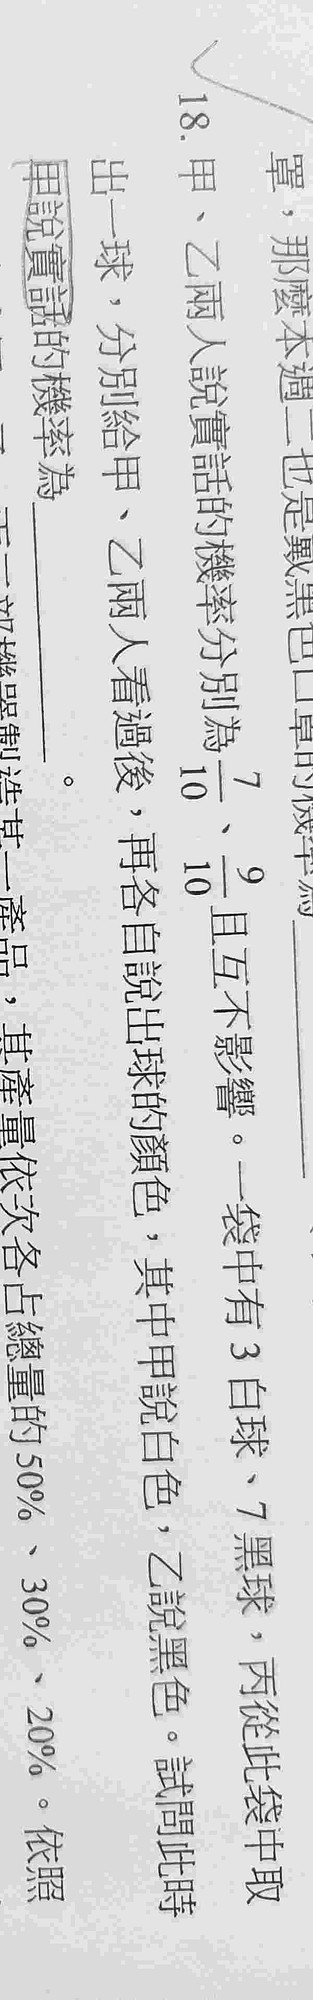 罩，那麼本週二也是戴黑色口罩的機率為
18. 甲、乙兩人說實話的機率分別為 7/10、9/10 且互不影響。一袋中有 3 白球、7 黑球，丙從此袋中取
出一球，分別給甲、乙兩人看過後，再各自說出球的顏色，其中甲說白色，乙說黑色。試問此時
甲說實話的機率為________。
機器製造某一產品，其產量依次各占總量的 50%、30%、20%。依照